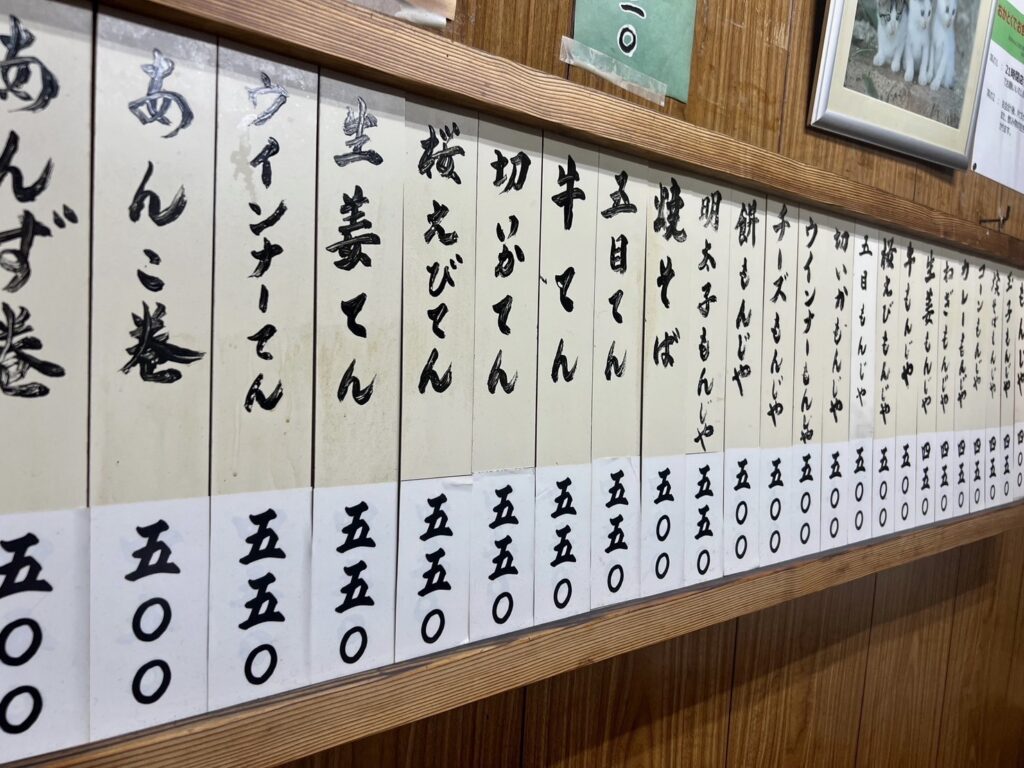 コーンもんじゃ 四五〇
カレーもんじゃ 四五〇
ねぎもんじゃ 四五〇
生姜もんじゃ 四五〇
牛もんじゃ 五〇〇
桜えびもんじゃ 五〇〇
五目もんじゃ 五〇〇
切いかもんじゃ 五〇〇
ウインナーもんじゃ 五〇〇
チーズもんじゃ 五〇〇
餅もんじゃ 五〇〇
明太子もんじゃ 五五〇
焼そば 五〇〇
五目てん 五五〇
牛てん 五五〇
切いかてん 五五〇
桜えびてん 五五〇
生姜てん 五五〇
ウインナーてん 五五〇
あんこ巻 五〇〇
あんず巻 五〇〇